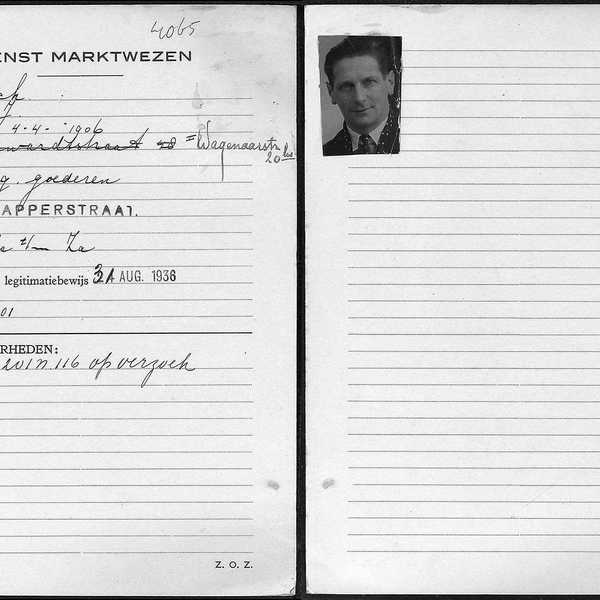 4065
ENST MARKTWEZEN
4-4-1906
wardtstraat 48 = Wagenaarstr.
20 bis
g. goederen
APPERSTRAAT.
t/m Za
legitimatiebewijs 31 AUG. 1936
01
RHEDEN:
201 n. 116 op verzoek
Z. O. Z.